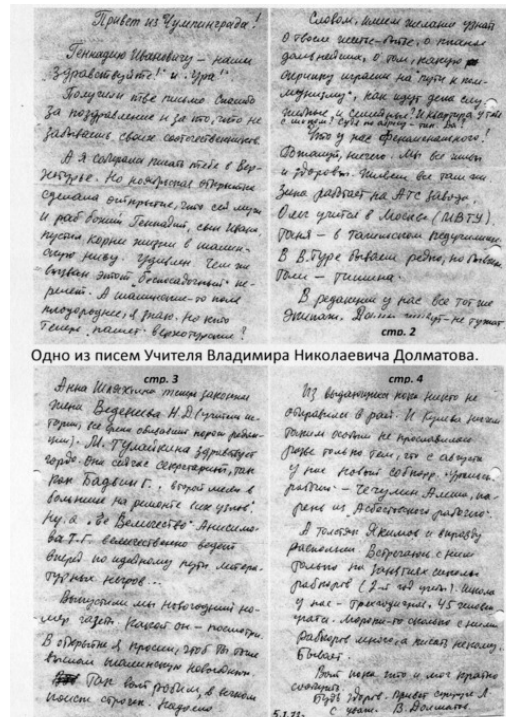 Привет из Чумпинграда!
Геннадию Ивановичу – наши
"Здравствуйте!" и "Ура"
Получили твое письмо. Спасибо
за поздравление и за то, что не
забываешь своих соотечественников.
А я собирался писать тебе в Вер-
хотурье. Но ноябрьская открытка
сделала открытие, что сей муж
и раб божий Геннадий, сын Ивана,
пустил корни жизни в шалин-
скую ниву. Удивлен. Чем же
вызван этот "беспосадочный" пе-
релет. А шалинское-то поле
плодороднее, я знаю. Но кто
теперь пашет верхотурские?
Словом, имеем желание узнать
о твоем житье-бытье, о планах
дальнейших, о том, какую
скрипку играешь на "пути к ком-
мунизму", как идут дела слу-
жебные и семейные? И квартира у тебя
Что у нас феноменального?
Пожалуй, ничего. Мы все живы
и здоровы. Живем все там же
Зина работает на АТС завода.
Олег учится в Москве (МВТУ).
Таня – в Тагильском педучилище.
В В.Туре бываем редко, но бываем.
– тишина.
В редакции у нас все тот же
экипаж. не тужат
стр. 2
Одно из писем Учителя Владимира Николаевича Долматова.
стр. 3
Анна теперь законная
жена Веденеева Н.Д. (учитель ис-
тории,
). М. Гулайкина здравствует
гордо. Она сейчас секретарит, так
как Бадвин Г. второй месяц в
больнице на ремонте всех узлов.
Ну, а "Ее Величество" Анисимо-
ва Т.Г. величественно ведет
вперед по идейному пути литера-
турных негров...
Выпустили мы новогодний но-
мер газеты. Какой он – посмотри.
В открытке я просил, чтоб ты тоже
выслал шалинскую новогоднюю.
Так вот робим, в вечном
поиске строчек. Надоело
стр. 4
Из выдающихся пока никто не
отправился в рай. И Кушва ничем
таким особым не прославилась
разве только тем, что с августа
у нас новый собкор "Уральского
рабочего" – Чечулин Алеша, па-
рень из Асбестовского рабочего.
А толстяк Якимов и вправду
располнел. Встречаюсь с ним
только на занятиях школы
рабкоров (2-й год учебы). Школа
у нас – трехгодичная. 45 человек
учатся. Морока-то сколько с ними
Рабкоров много, а писать некому.
Бывает.
Вот пока что и мог кратко
сообщить.
Будь здоров. Привет супруге Л.
С уваж. В. Долматов.